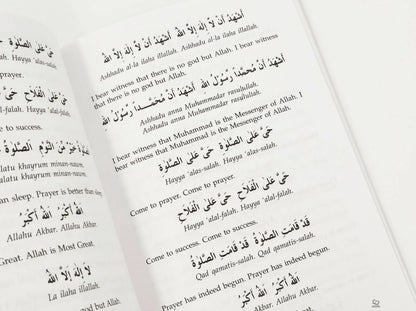 حَيَّ عَلَى الصَّلَاةِ
Hayya 'alas-salah.
prayer.
حَيَّ عَلَى الْفَلَاحِ
al-falah. Hayya 'alal-falah.
ome to success.
خَيْرٌ مِّنَ النَّوْمِ الصَّلَاةُ
alatu khayrum minan-nawm.
an sleep. Prayer is better than
اَللهُ أَكْبَرُ اَللهُ أَكْبَرُ
Allahu Akbar. Allahu Akbar.
Great. Allah is Most Great.
لَا إِلٰهَ إِلَّا اللهُ
La ilaha illallah.
no god but Allah.
أَشْهَدُ أَنْ لَّا إِلٰهَ إِلَّا اللهُ أَشْهَدُ أَنْ لَّا إِلٰهَ إِلَّا اللهُ
Ashhadu al-la ilaha illallah. Ashhadu al-la ilaha illallah.
I bear witness that there is no god but Allah. I bear witness
that there is no god but Allah.
أَشْهَدُ أَنَّ مُحَمَّدًا رَّسُوْلُ اللهِ أَشْهَدُ أَنَّ مُحَمَّدًا رَّسُوْلُ اللهِ
Ashhadu anna Muhammadar rasulullah.
Ashhadu anna Muhammadar rasulullah.
I bear witness that Muhammad is the Messenger of Allah. I
bear witness that Muhammad is the Messenger of Allah.
حَيَّ عَلَى الصَّلَاةِ حَيَّ عَلَى الصَّلَاةِ
Hayya 'alas-salah. Hayya 'alas-salah.
Come to prayer. Come to prayer.
حَيَّ عَلَى الْفَلَاحِ حَيَّ عَلَى الْفَلَاحِ
Hayya 'alal-falah. Hayya 'alal-falah.
Come to success. Come to success.
قَدْ قَامَتِ الصَّلَاةُ قَدْ قَامَتِ الصَّلَاةُ
Qad qamatis-salah. Qad qamatis-salah.
Prayer has indeed begun. Prayer has indeed begun.
اَللهُ أَكْبَرُ اَللهُ أَكْبَرُ
Allahu Akbar. Allahu Akbar.